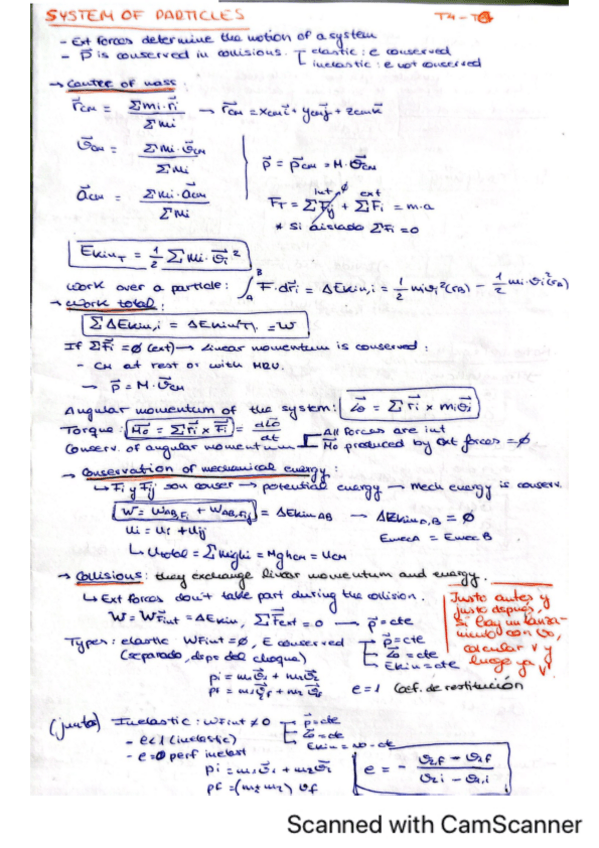 SYSTEM OF PARTICLES T4-T
- Ext forces determine the motion of a system
- P⃗ is conserved in collisions. [ elastic: e conserved
inelastic: e not conserved
→ Center of mass:
r⃗cm = Σmi·r⃗i / Σmi → r⃗cm = xcm i⃗ + ycm j⃗ + zcm k⃗
v⃗cm = Σmi·v⃗cm / Σmi
p⃗ = p⃗cm = M·v⃗cm
a⃗cm = Σmi·a⃗cm / Σmi
int ∅ ext
F⃗T = ΣF⃗ij + ΣF⃗i = m·a
* Si aislado ΣF⃗i = 0
EkinT = 1/2 Σmi·v⃗i²
Work over a particle: ∫AB F⃗·dr⃗i = ΔEkin,i = 1/2 mivi²(rB) - 1/2 mi·vi²(rA)
→ Work total:
ΣΔEkin,i = ΔEkin(T). = W
If ΣF⃗i = ∅ (ext) → Linear momentum is conserved:
- CM at rest or with MRU.
→ p⃗ = M·v⃗cm
Angular momentum of the system: L⃗o = Σr⃗i × miv⃗i
Torque: M⃗o = Σr⃗i × F⃗i = dL⃗o/dt
Conserv. of angular momentum [ All forces are int
M⃗o produced by ext forces = ∅
→ Conservation of mechanical energy:
↳ F⃗i y F⃗ij son conser → potential energy → mech energy is conserv.
W = WAB,Fi + WAB,Fij = ΔEkinAB → ΔEkinA,B = ∅
Ui = Ui + Uij EmecA = EmecB
↳ Utotal = Σmighi = Mghcm = Ucm
→ Collisions: they exchange linear momentum and energy.
↳ Ext forces don't take part during the collision.
W = WFint = ΔEkin, ΣF⃗ext = 0 → p⃗ = cte
Types: elastic WFint = ∅, E conserved [ p⃗ = cte
L⃗o = cte
Ekin = cte
(separado, desp del choque)
Justo antes y
justo después,
si hay un lanza-
miento con vo,
calcular v y
luego ya v'
pi = m1v⃗1 + m2v⃗2
pf = m1v⃗f + m2 v⃗f e = 1 Coef. de restitución
(junto) Inelastic: WFint ≠ 0 [ p⃗ = cte
L⃗o = cte
Ekin = no-cte
- e<1 (inelastic)
- e = ∅ perf inelast
pi = m1v⃗1 + m2v⃗2
pf = (m1 m2) vf
e = - v2,f - v1,f / v2,i - v1,i
Scanned with CamScanner